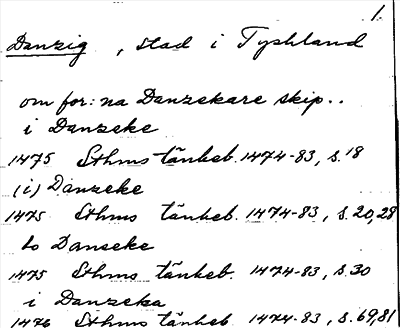 1.
Danzig, stad i Tyskland
om for: na Danzekare skip..
i Danzeke
1475 Sthms tänkeb. 1474-83, s. 18
(i) Danzeke
1475 Sthms tänkeb. 1474-83, s. 20, 28
to Danseke
1475 Sthms tänkeb. 1474-83, s. 30
i Danzeka
1476 Sthms tänkeb. 1474-83, s. 69, 81